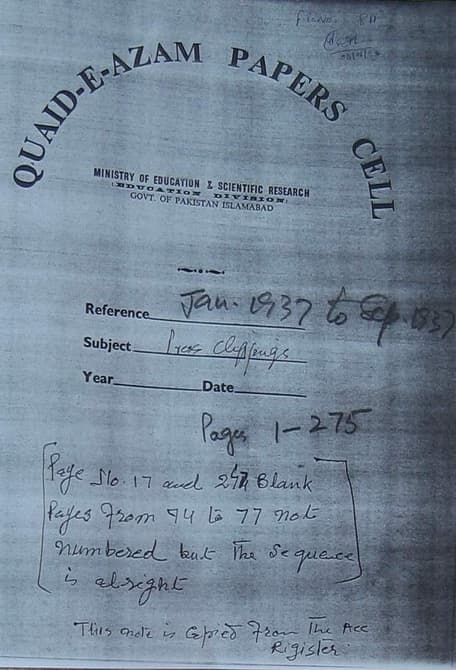 F. No. 811
QUAID-E-AZAM PAPERS CELL
MINISTRY OF EDUCATION & SCIENTIFIC RESEARCH
(EDUCATION DIVISION)
GOVT. OF PAKISTAN ISLAMABAD
Reference Jan. 1937 to Sep. 1937
Subject Press clippings
Year Date
Pages 1-275
Page No. 17 and 247 Blank
Pages From 74 to 77 not
numbered but The Sequence
is alright
This note is Copied From The Acc
Register.